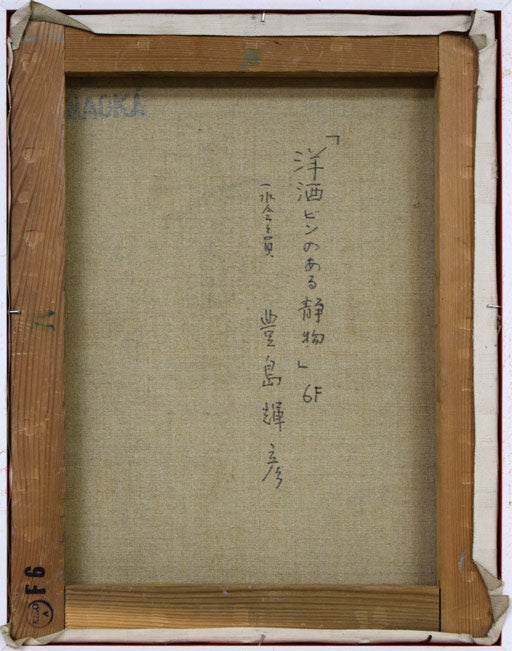 「洋酒ビンのある静物」6F
一水会会員 豊島輝彦
F6